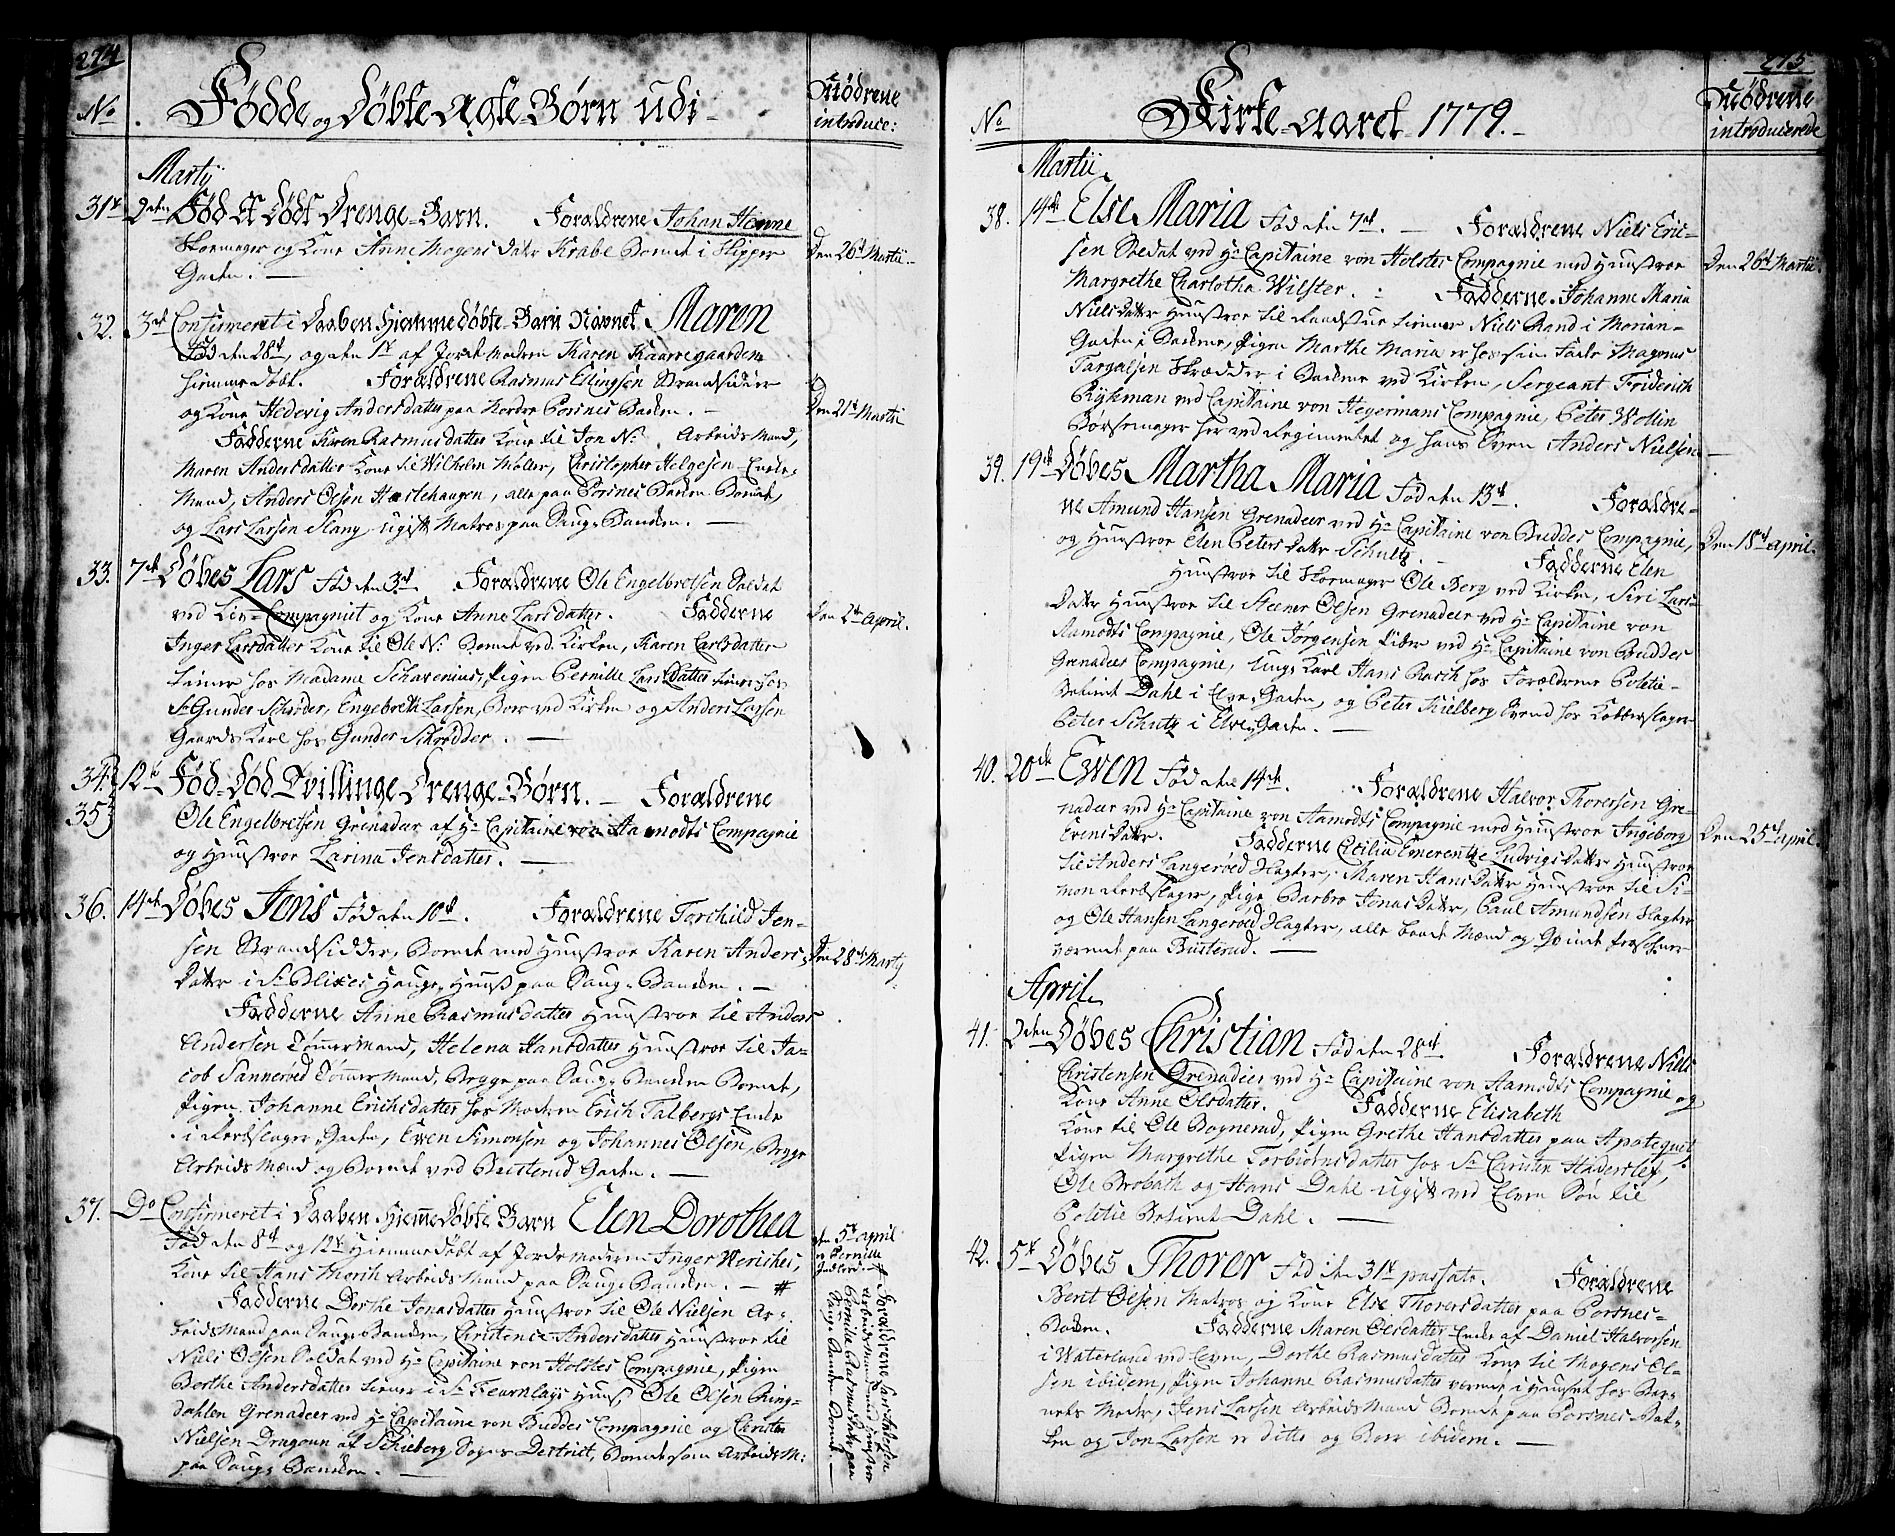 274
No
Fødde og Døbte Ægte-Børn udi
Mødrene
introduce:
Martij
31te 2den Fød Et Dødt Drenge-Barn. Forældrene Johan Henne
Skomager og Kone Anne Mogens datr Krabe Boende i Skipper
Gaden.
Den 26de Martii
32. 3de Confirmeret i Daaben Hiemmedøbte-Barn Navnet Maren
Fød den 28de, og den 1te af Jorde Modren Karen Kaarregaarden
hiemme døbt. Forældrene Rasmus Ellingsen Strandsidder
og Kone Hedevig Andersdatter paa Nordre Porsnes Backen.
Den 21de Martii
Fadderne Karen Rasmusdatter Kone til Jon N: Arbeids Mand,
Maren Andersdatter Kone til Wilhelm Møler, Christopher Helgesen Encke-
Mand, Anders Olsen Hastehaugen, alle paa Porsnes Backen Boende,
og Lars Larsen Slang ugift Matros paa Saug-Banden.
33. 7de Døbes Lars Fød den 3de Forældrene Ole Engelbretsen Soldat
ved Liv-Compagniet og Kone Anne Larsdatter. Fadderne
Den 2de April.
Inger Larsdatter Kone til Ole N: Boende ved Kirken, Karen Carlsdatter
tiener hos Madame Schavenius, Pigen Pernille Lars Datter tiener hos
Sr Gunder Schrøder, Engebreth Larsen, Boer ved Kirken og Anders Larsen
Gaards Karl hos Gunder Schrødder.
34. 12te Fød-Død Tvillinge Drenge-Børn. Forældrene
35
Ole Engelbretsen Grenadeer af Hr Capitaine von Aamodts Compagnie
og Hustroe Larina Jensdatter.
36. 14de Døbes Jens Fød den 10de. Forældrene Torchild Jen-
sen Strandsidder, Boende med Hustroe Karen Anders
Den 28de Martij
Datter i Sr Blixes Hauge-Huus paa Saug-Banden.
Fadderne Anne Rasmusdatter Hustroe til Anders
Andersen Tømmermand, Helena Hansdatter Hustroe til Ja-
cob Sannerød Tømmer Mand, Begge paa Saug-Banden Boende,
Pigen Johanne Erichsdatter hos Modren Erich Talbergs Encke
i Rebslager Gaden, Even Simonsen og Johannes Olsen, Begge
Arbeids Mænd og Boende ved Busterud Gaden.
37. Do Confirmeret i Daaben Hiemmedøbte Barn Elen Dorothea
Fød den 8de og 12te Hiemmedøbt af Jordemodren Inger
Kone til Hans Morch Arbeids Mand paa Saug-Banden. #
den 5te April
Fadderne Dorthe Jonasdatter Hustroe til Ole Nielsen Ar-
beids Mand paa Saug-Banden, Christence Andersdatter Hustroe til
Niels Olsen Soldat ved Hr Capitaine von Holstes Compagnie, Pigen
Berthe Andersdatter tiener i Sr Fearnlays Huus, Ole Olsen Ring-
dahlen Grenadeer ved Hr Capitaine von Buddes Compagnie og Christen
Nielsen Dragoun af Schieberg Sogns Destrict, Boende som Arbeids M:
paa Saug-Banden.
# Forældrene Lars Andersen
Arbeidsmand med Hustroe
Pernille Rasmusdatter paa
Saug-Banden Boende.
275
No
Kirke-Aaret 1779.
Mødrene
introducerede
Martii
38. 14de Else Maria Fød den 7de. Forældrene Niels Eric-
sen Soldat ved Hr Capitaine von Holstes Compagnie med Hustroe
Den 26de Martii.
Margrethe Charlotha Wilster. Fadderne Johanne Maria
Nielsdatter Hustroe til Raadstue tiener Niels Rand i Morian-
Gaden i Backene, Pigen Marthe Maria er hos sin Fader Magnus
Targalsen Skrædder i Backene ved Kirken, Sergeant Friderich
Rykman ved Capitaine von Hegermans Compagnie, Peter Wollin
Børsemager her ved Regimentet og hans Sven Anders Nielsen
39. 19de Døbes Martha Maria Fød den 13de. Forældre-
ne Amund Hansen Grenadeer ved Hr Capitaine von Buddes Compagnie,
Den 18de April.
og Hustroe Elen Peters datr Schultz. Fadderne Elen
Hustroe til Skomager Ole Berg ved Kirken, Siri Lars-
Datr Hustroe til Steener Olsen Grenadeer ved Hr Capitaine von
Aamodts Compagnie, Ole Jørgensen Piber ved Hr Capitaine von Buddes
Grenadeer Compagnie, Ung Karl Hans Rasch hos Forældrene Politie-
Betient Dahl i Elve-Gaden, og Peter Kielberg Svend hos Kobberslager
Peter Schutz i Elve-Gaden.
40. 20de Even Fød den 14de. Forældrene Halvor Thoresen Gre-
nadeer ved Hr Capitaine von Aamodts Compagnie med Hustroe Ingeborg
Evensdatter. Fadderne Cecilia Emerentze Ludvigsdatter Hustroe
Den 25de April.
til Anders Langerød Vægter, Maren Hansdatr Hustroe til Si-
mon Rebslager, Pige Barbro Jonasdatter, Paul Amundsen Vægter
og Ole Hansen Langerød Vægter, alle baade Mænd og Qvinde Personer
værende paa Busterud.
April
41. 2den Døbes Christian Fød den 28de. Forældrene Niels
Christensen Grenadeer ved Hr Capitaine von Aamodts Compagnie og
Kone Anne Olsdatter. Fadderne Elisabeth
Kone til Ole Bognerud, Pigen Grethe Hansdatter paa Apotequet,
Pigen Margrethe Torbiørnsdatter hos Sr Carsten Hadersløf,
Ole Brobath og Hans Dahl ugift ved Elven Søn til
Politie Betient Dahl.
42. 5te Døbes Thorer Fød den 31te passato. Forældrene
Bent Olsen Matros og Kone Else Thoresdatter paa Porsnes-
Backen. Fadderne Maren Olsdatter Encke af Daniel Halvorsen
i Waterland ved Elven, Dorthe Rasmusdatter Kone til Mogens Ol-
sen ibidem, Pigen Johanne Rasmusdatter værende i Huuset hos Bar-
nets Moder, Jens Larsen Arbeids Mand Boende paa Porsnes-Bac-
ken og Jon Larsen er ditto og Boer ibidem.